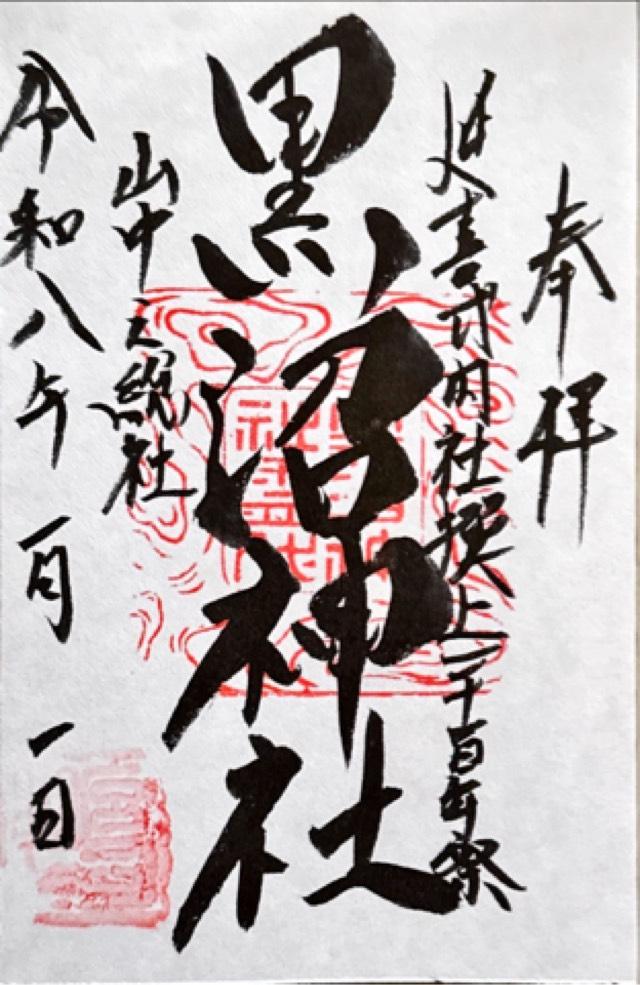 奉拝
延喜式内社撰上一千百年祭
黒沼神社
山中之総社
令和八年一月一日